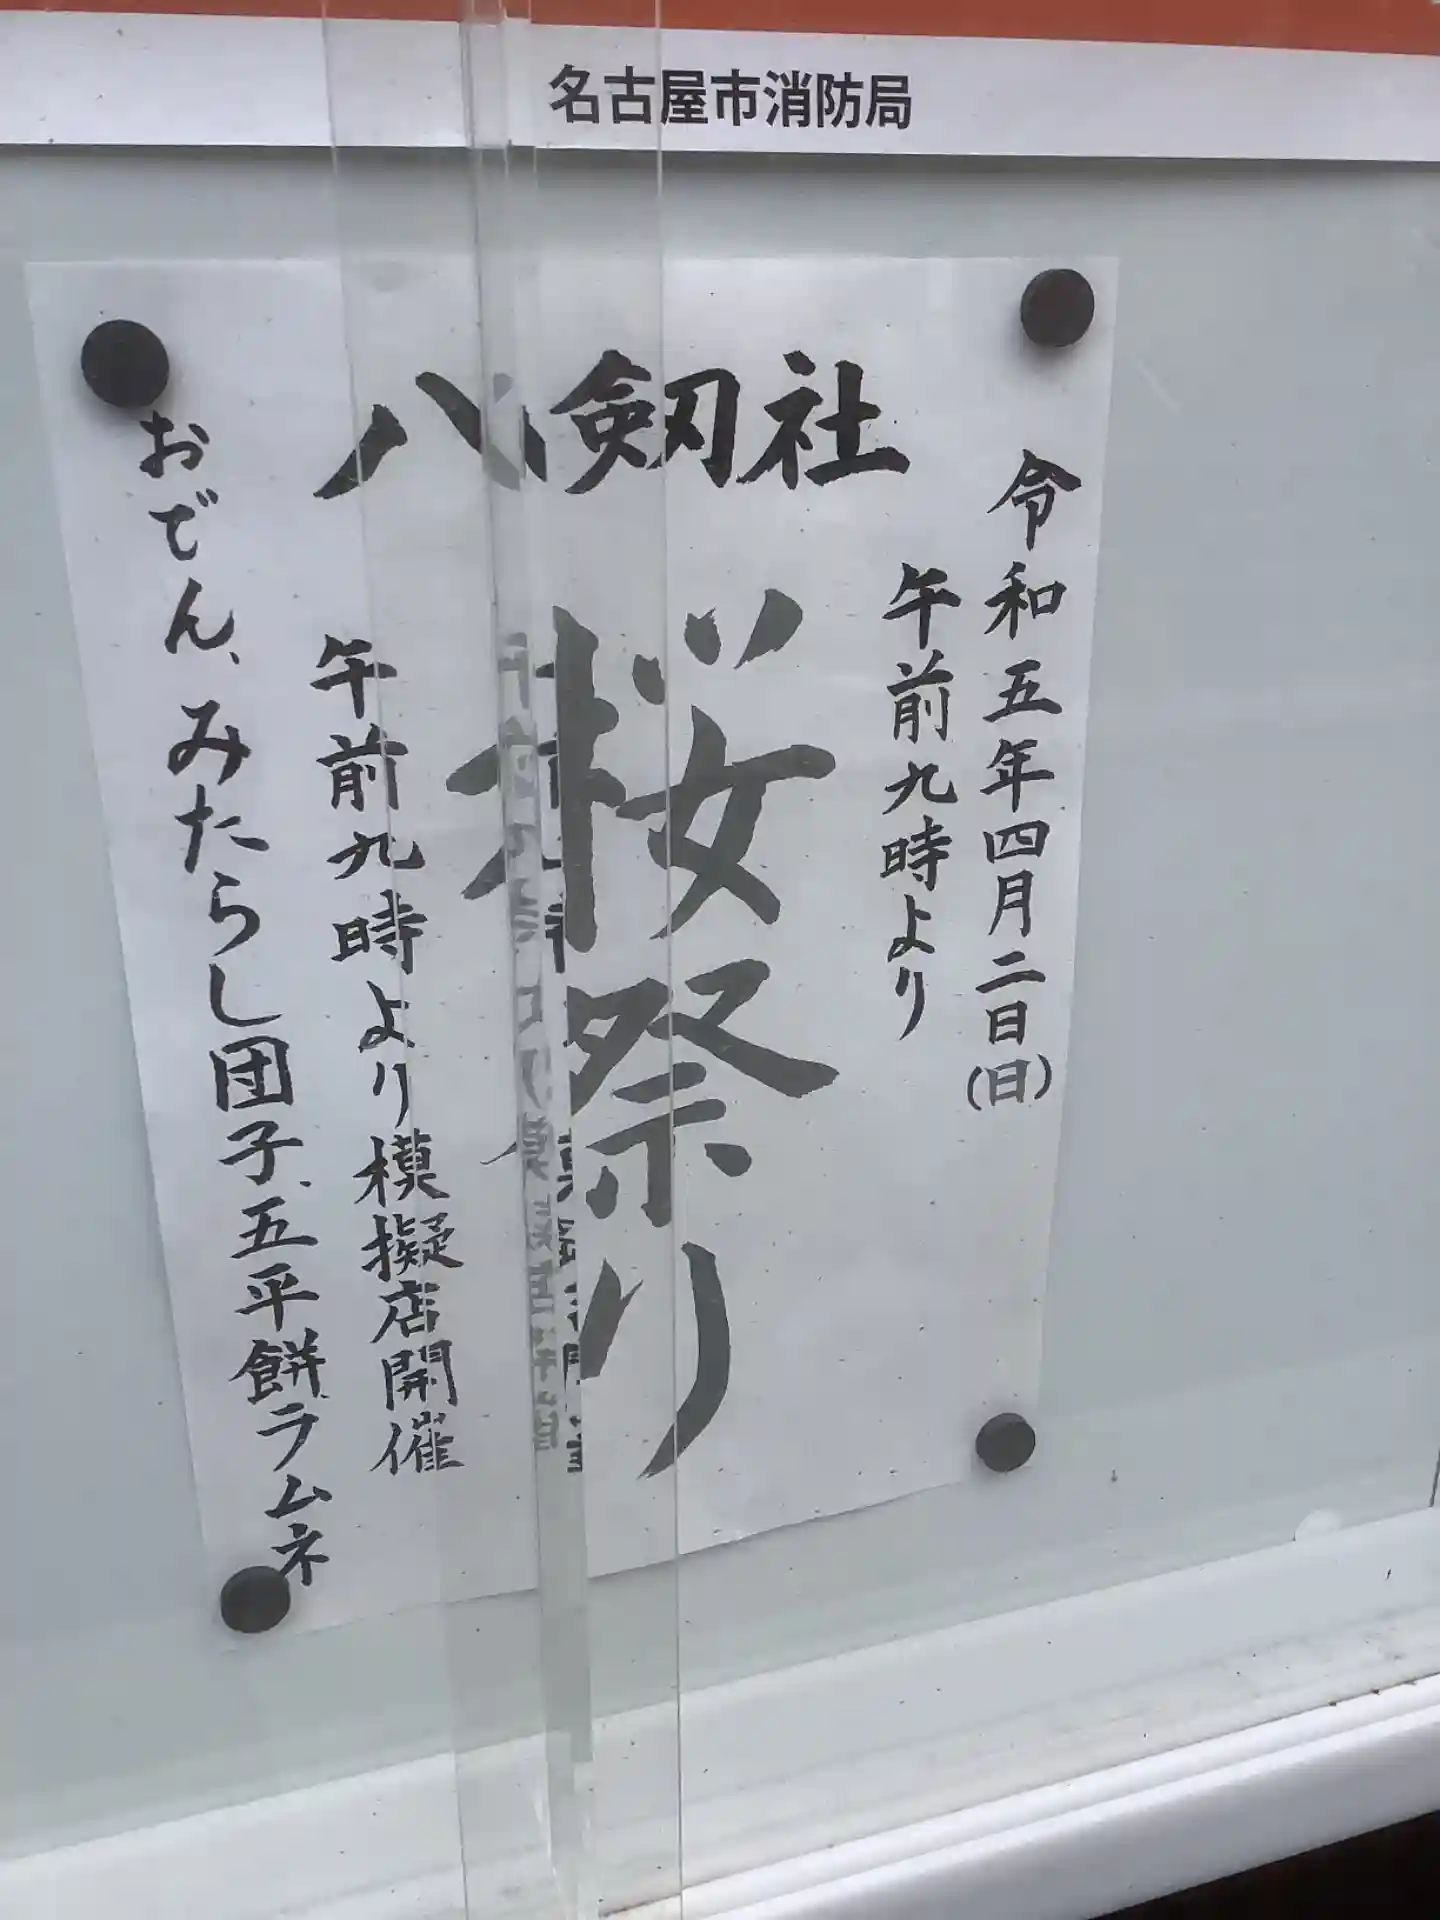 名古屋市消防局
八剱社
令和五年四月二日(日)
午前九時より
桜祭り
午前九時より模擬店開催
おでん、みたらし団子、五平餅、ラムネ